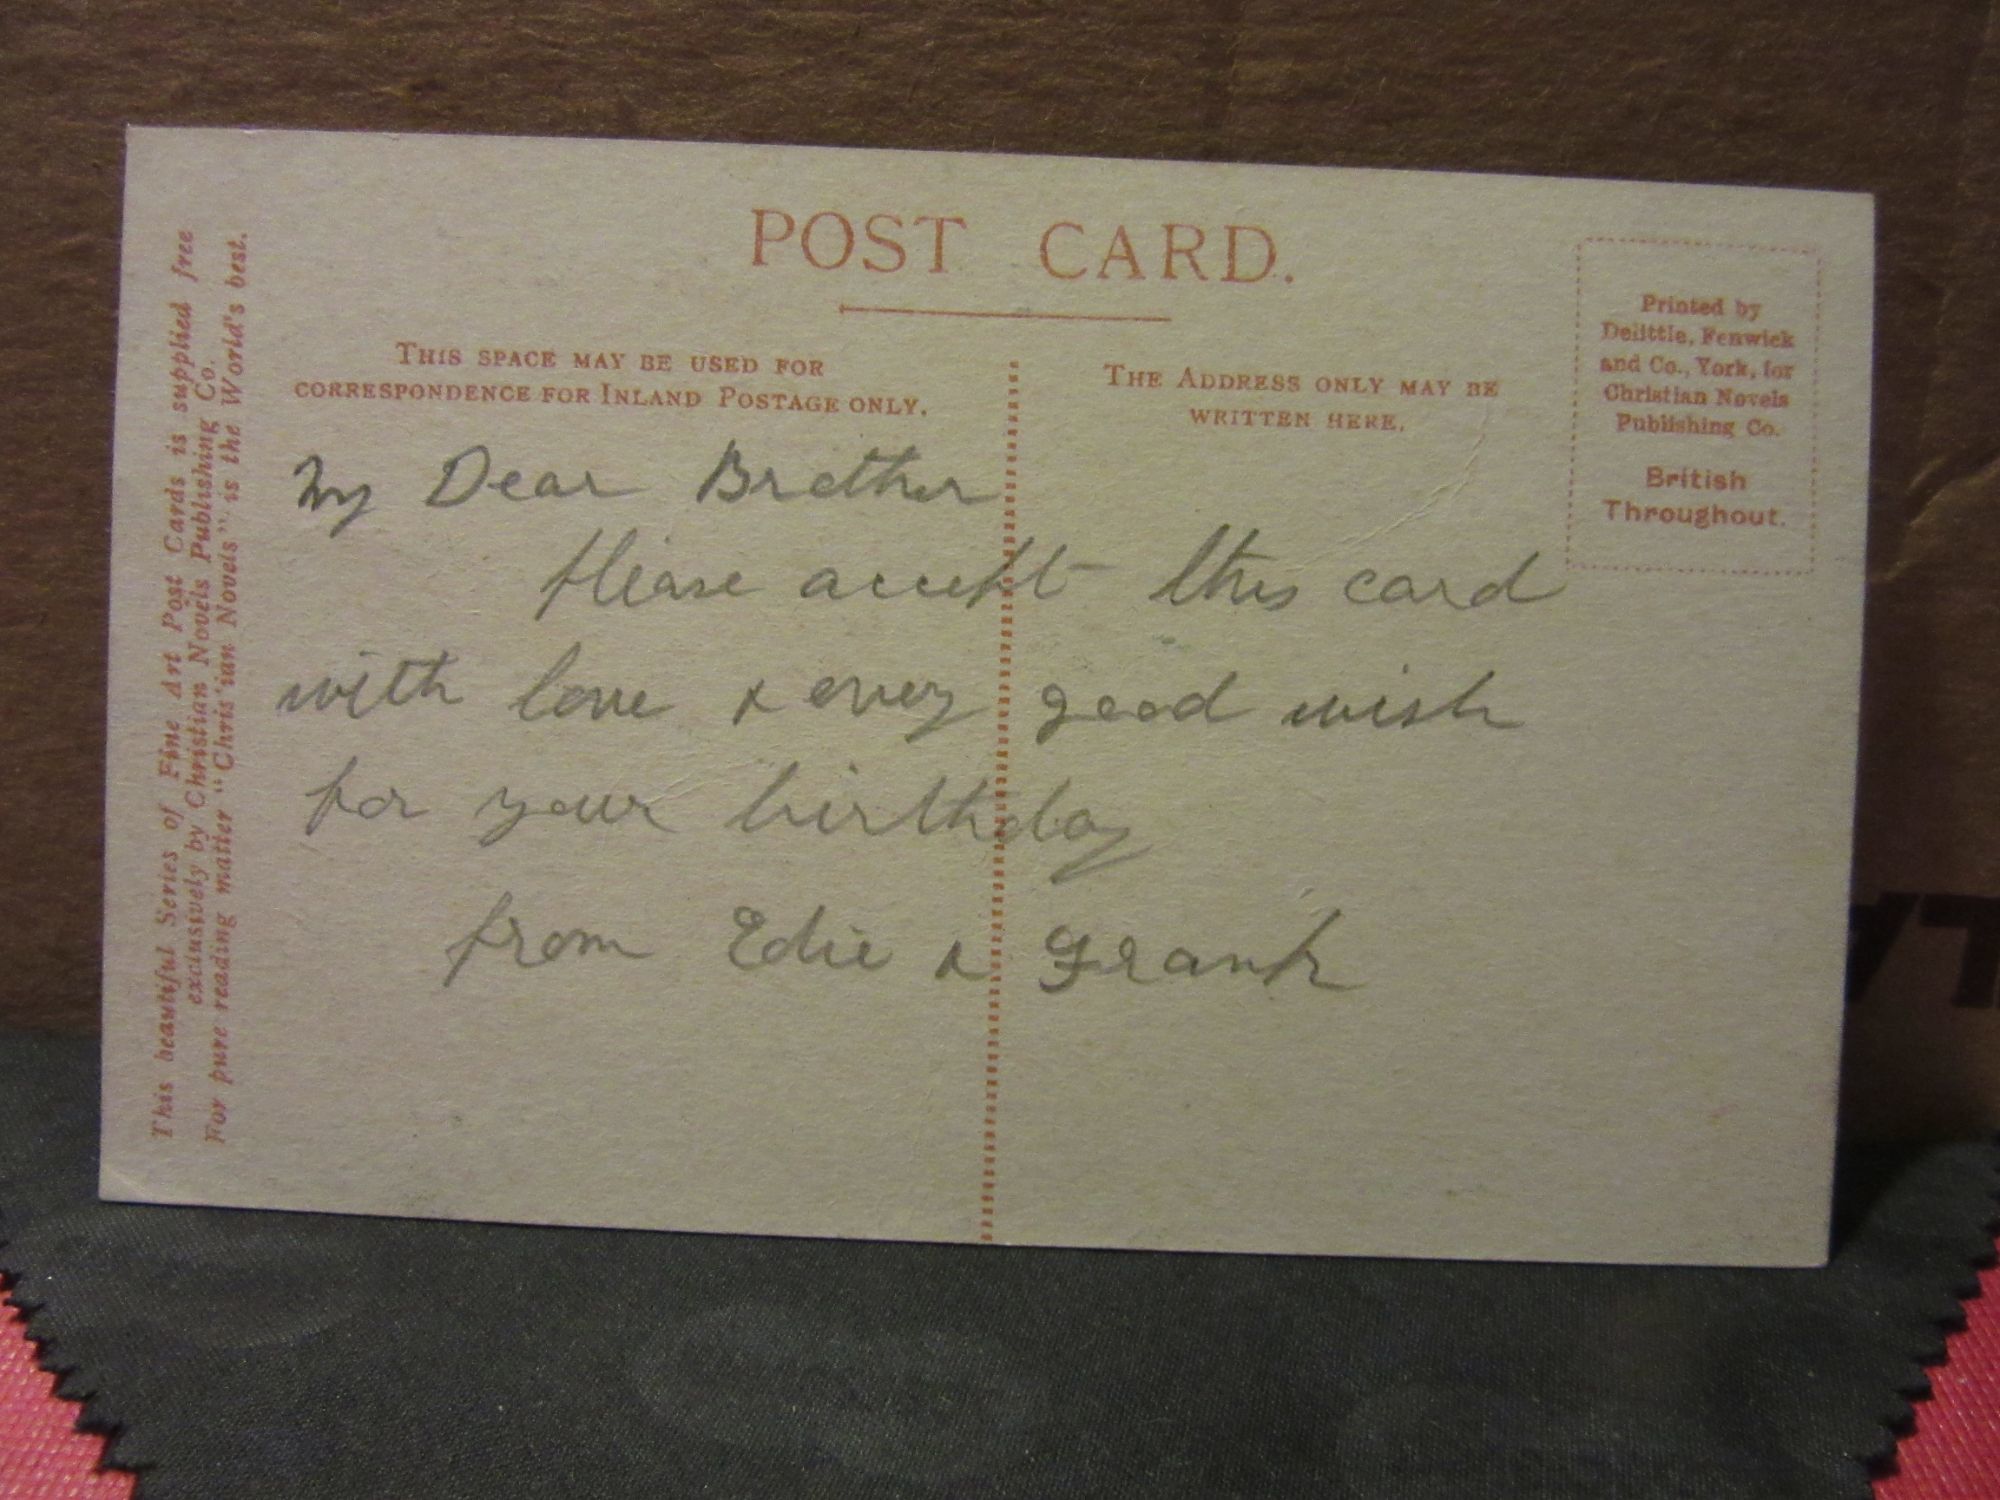 POST CARD.
THIS SPACE MAY BE USED FOR
CORRESPONDENCE FOR INLAND POSTAGE ONLY.
THE ADDRESS ONLY MAY BE
WRITTEN HERE.
Printed by
Delittle, Fenwick
and Co., York, for
Christian Novels
Publishing Co.
British
Throughout.
My Dear Brother
Please accept this card
with love & every good wish
for your birthday
from Edie & Frank
This beautiful Series of Fine Art Post Cards is supplied free
exclusively by Christian Novels Publishing Co.
For pure reading matter "Chris'ian Novels" is the World's best.